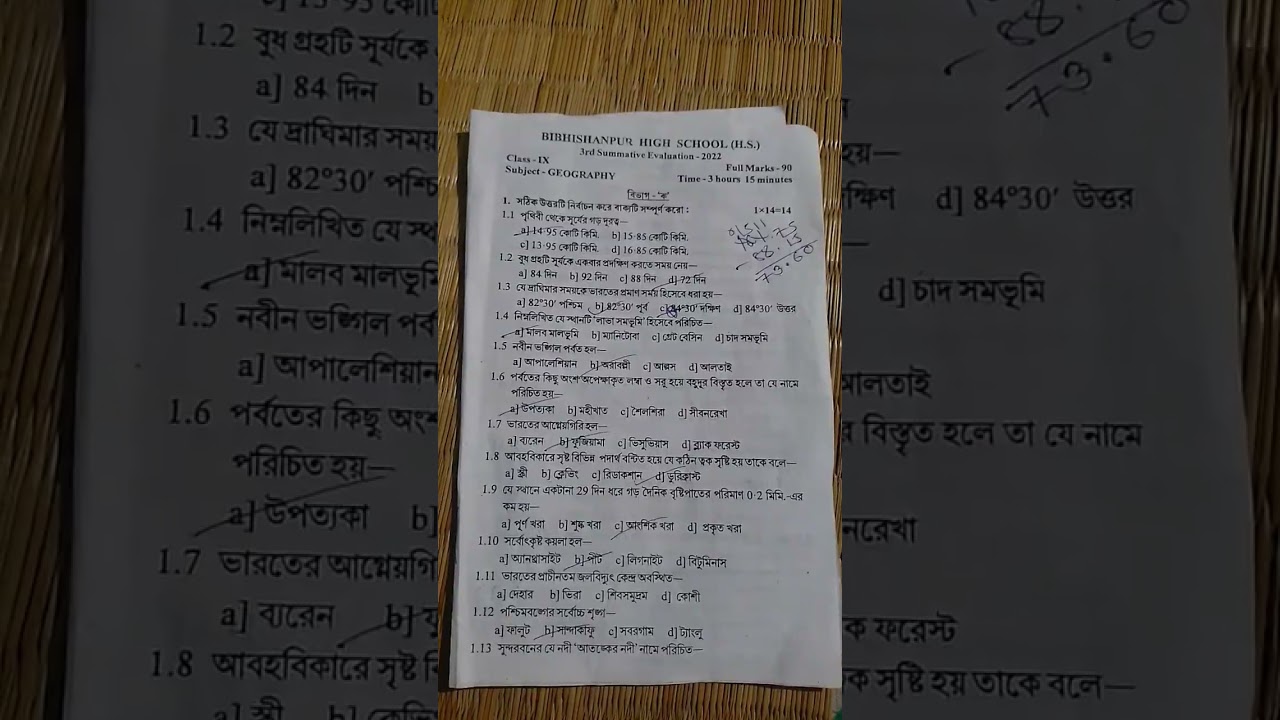 BIBHISHANPUR HIGH SCHOOL (H.S.)
3rd Summative Evaluation - 2022
Class - IX Full Marks - 90
Subject - GEOGRAPHY Time - 3 hours 15 minutes
বিভাগ - 'ক'
1. সঠিক উত্তরটি নির্বাচন করে বাক্যটি সম্পূর্ণ করো : 1×14=14
1.1 পৃথিবী থেকে সূর্যের গড় দূরত্ব—
a] 14·95 কোটি কিমি. b] 15·85 কোটি কিমি.
c] 13·95 কোটি কিমি. d] 16·85 কোটি কিমি.
1.2 বুধ গ্রহটি সূর্যকে একবার প্রদক্ষিণ করতে সময় নেয়—
a] 84 দিন b] 92 দিন c] 88 দিন d] 72 দিন
1.3 যে দ্রাঘিমার সময়কে ভারতের প্রমাণ সময় হিসেবে ধরা হয়—
a] 82°30′ পশ্চিম b] 82°30′ পূর্ব c] 84°30′ দক্ষিণ d] 84°30′ উত্তর
1.4 নিম্নলিখিত যে স্থানটি 'লাভা সমভূমি' হিসেবে পরিচিত—
a] মালব মালভূমি b] ম্যানিটোবা c] গ্রেট বেসিন d] চাদ সমভূমি
1.5 নবীন ভঙ্গিল পর্বত হল—
a] আপালেশিয়ান b] আরাবল্লী c] আল্পস d] আলতাই
1.6 পর্বতের কিছু অংশ অপেক্ষাকৃত লম্বা ও সরু হয়ে বহুদূর বিস্তৃত হলে তা যে নামে
পরিচিত হয়—
a] উপত্যকা b] মহীখাত c] শৈলশিরা d] সীবনরেখা
1.7 ভারতের আগ্নেয়গিরি হল—
a] ব্যারেন b] ফুজিয়ামা c] ভিসুভিয়াস d] ব্ল্যাক ফরেস্ট
1.8 আবহবিকারে সৃষ্ট বিভিন্ন পদার্থ বন্টিত হয়ে যে কঠিন ত্বক সৃষ্টি হয় তাকে বলে—
a] স্ক্রী b] ক্রেভিং c] রিডাকশান d] ডুরিক্রাস্ট
1.9 যে স্থানে একটানা 29 দিন ধরে গড় দৈনিক বৃষ্টিপাতের পরিমাণ 0·2 মিমি.-এর
কম হয়—
a] পূর্ণ খরা b] শুষ্ক খরা c] আংশিক খরা d] প্রকৃত খরা
1.10 সর্বোৎকৃষ্ট কয়লা হল—
a] অ্যানথ্রাসাইট b] পীট c] লিগনাইট d] বিটুমিনাস
1.11 ভারতের প্রাচীনতম জলবিদ্যুৎ কেন্দ্র অবস্থিত—
a] দেহার b] ভিরা c] শিবসমুদ্রম d] কোশী
1.12 পশ্চিমবঙ্গের সর্বোচ্চ শৃঙ্গ—
a] ফালুট b] সান্দাকফু c] সবরগাম d] ট্যাংলু
1.13 সুন্দরবনের যে নদী 'আতঙ্কের নদী' নামে পরিচিত—
73·60